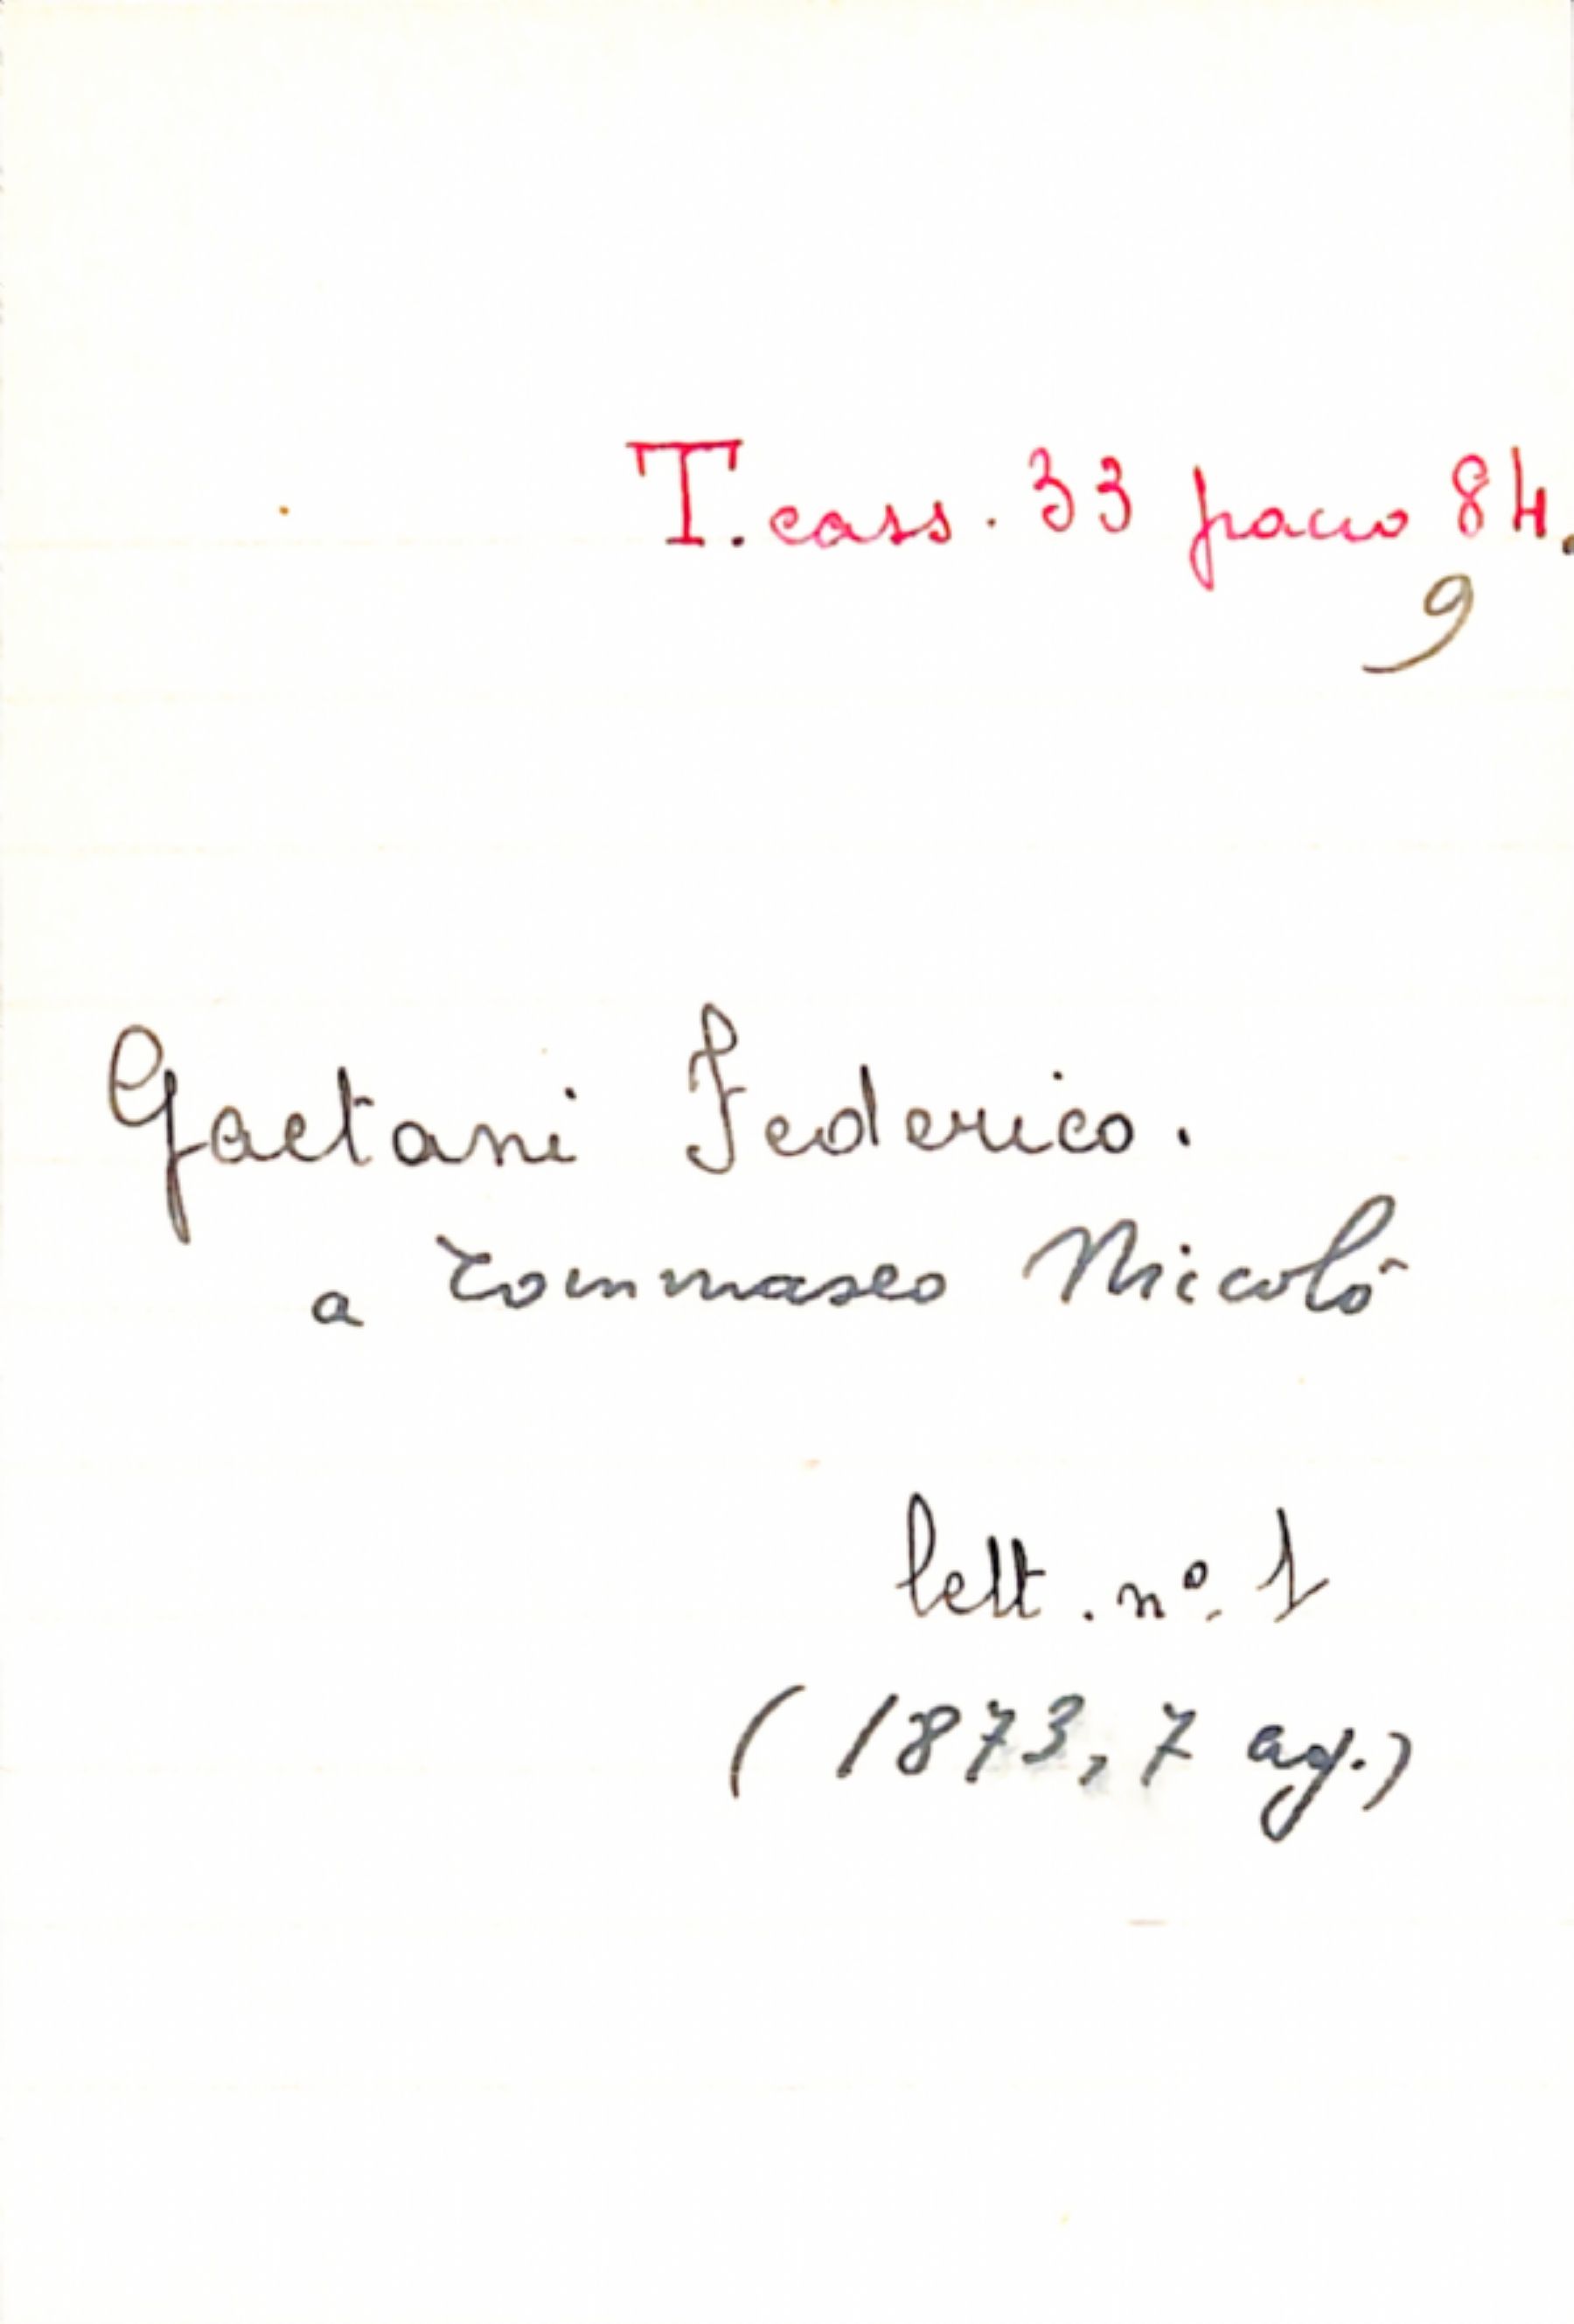 T. cass. 33 pacco 84.
9
Gaetani Federico.
a Tommaseo Nicolò
lett. nº. 1
(1873, 7 ag.)